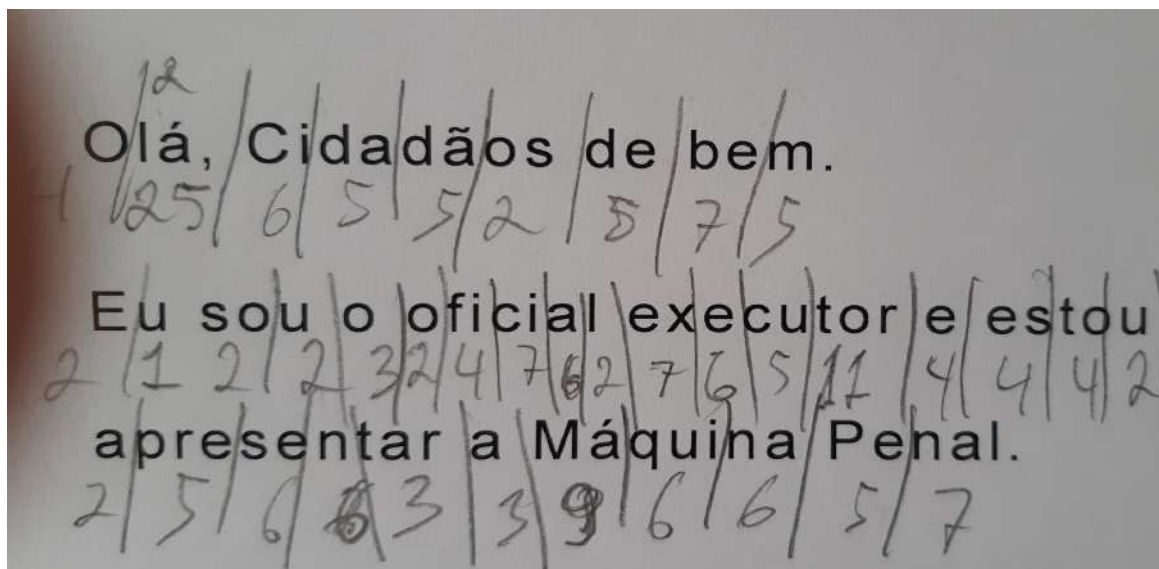 12
Olá, Cidadãos de bem.
25 6 5 5 2 5 7 5
Eu sou o oficial executor e estou
2 1 2 2 3 2 4 7 6 2 7 6 5 11 4 4 4 2
apresentar a Máquina Penal.
2 5 6 6 3 3 9 6 6 5 7